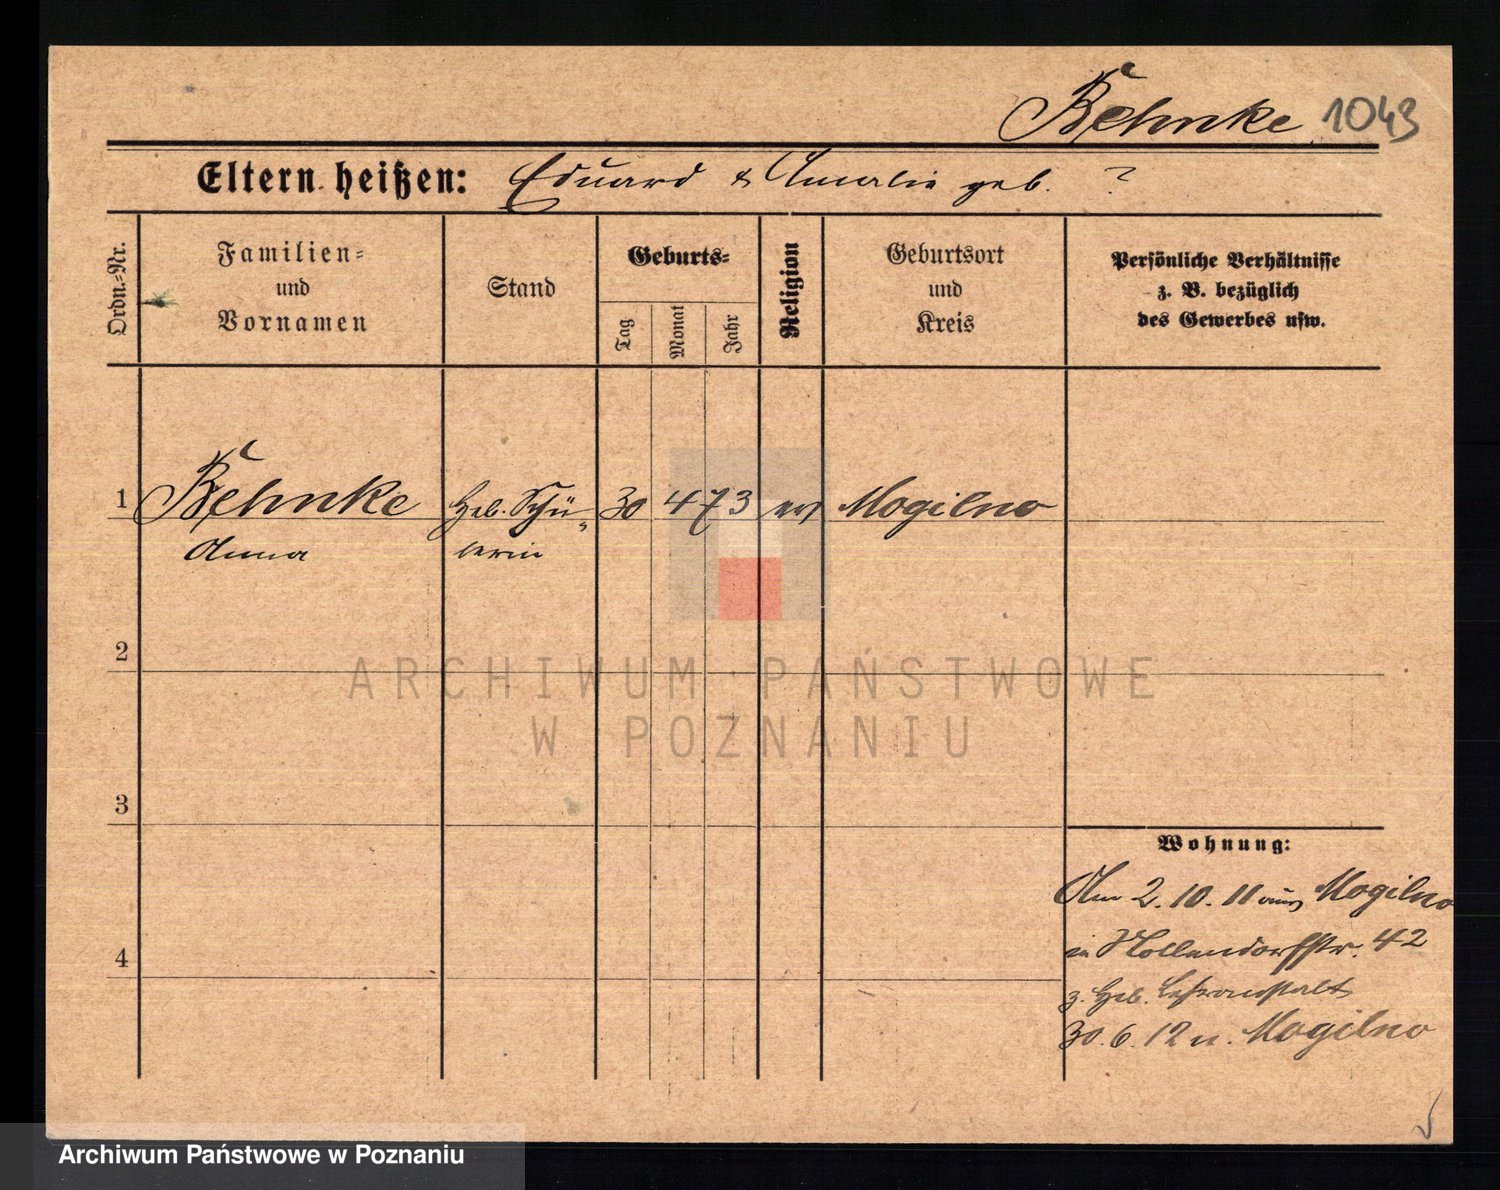 Behnke 1043
Eltern heißen: Eduard & Amalie geb. ?
Ordn.-Nr.
Familien-
und
Vornamen
Stand
Geburts-
Tag
Monat
Jahr
Religion
Geburtsort
und
Kreis
Persönliche Verhältnisse
z. B. bezüglich
des Gewerbes usw.
1 Behnke Heb. Schü- 30 4 73 ev Mogilno
Anna lerin
2
ARCHIWUM PAŃSTWOWE
W POZNANIU
3
Wohnung:
Am 2.10.11 aus Mogilno
in Nollendorfstr. 42
4
z. Heb. Lehranstalt
30.6.12 n. Mogilno
Archiwum Państwowe w Poznaniu